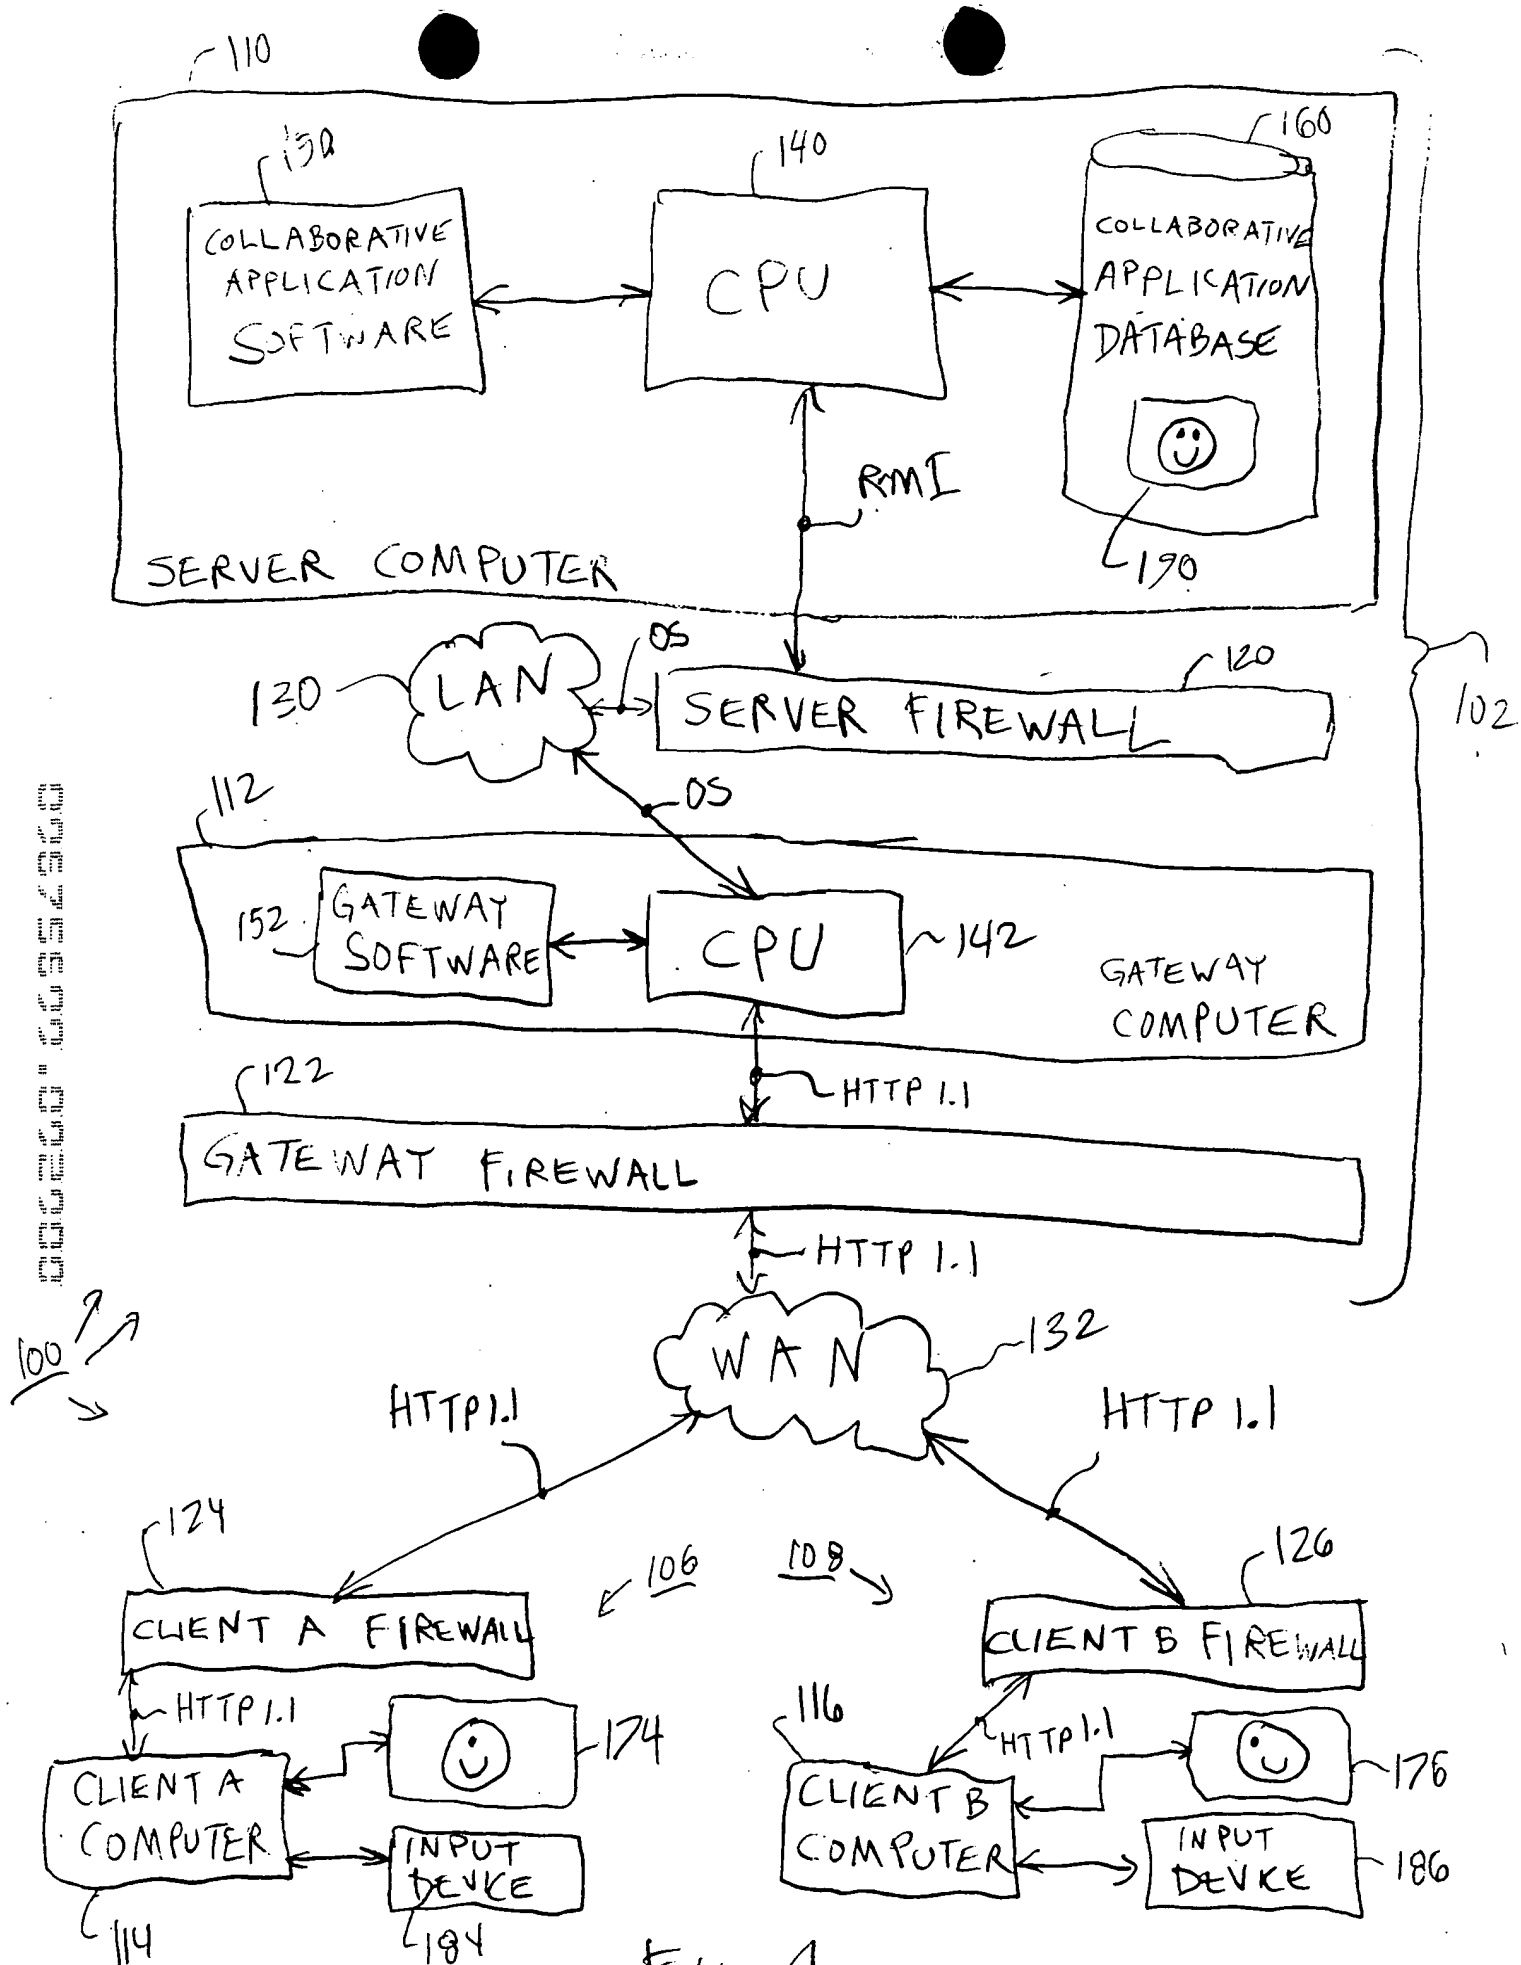 110
150
140
160
COLLABORATIVE
APPLICATION
SOFTWARE
CPU
COLLABORATIVE
APPLICATION
DATABASE
RMI
190
SERVER COMPUTER
OS
130
LAN
120
SERVER FIREWALL
102
112
OS
152
GATEWAY
SOFTWARE
CPU
142
GATEWAY
COMPUTER
122
HTTP 1.1
GATEWAY FIREWALL
HTTP 1.1
100
WAN
132
HTTP 1.1
HTTP 1.1
124
106
108
126
CLIENT A FIREWALL
CLIENT B FIREWALL
HTTP 1.1
174
116
HTTP 1.1
176
CLIENT A
COMPUTER
INPUT
DEVICE
CLIENT B
COMPUTER
INPUT
DEVICE
186
114
184